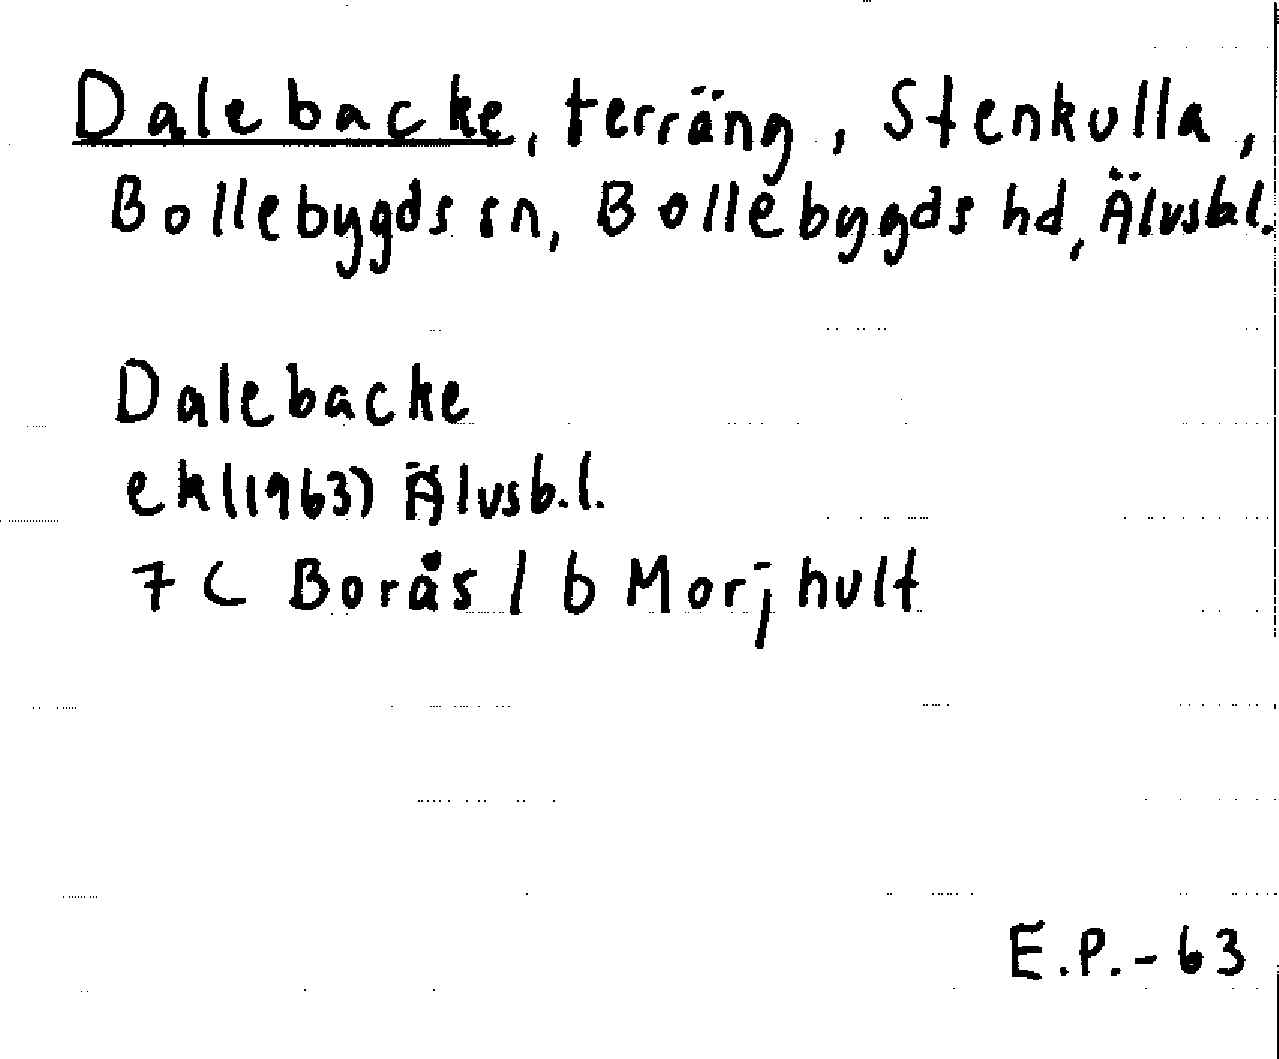 Dalebacke, terräng, Stenkulla,
Bollebygds sn, Bollebygds hd, Älvsb.l.
Dalebacke
ek (1963) Älvsb.l.
7 C Borås / b Morjhult
E.P. - 63